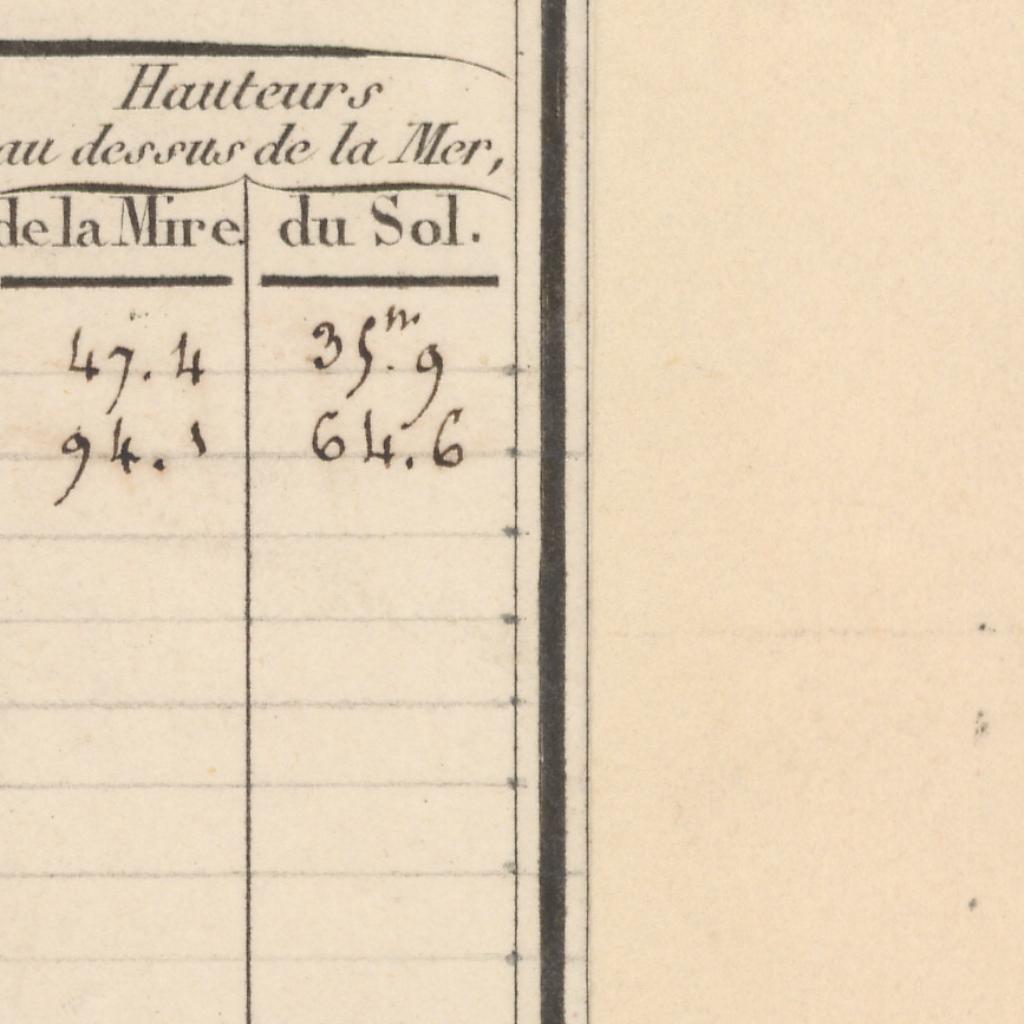 Hauteurs
au dessus de la Mer,
de la Mire du Sol.
47.4 35.m9
94.1 64.6